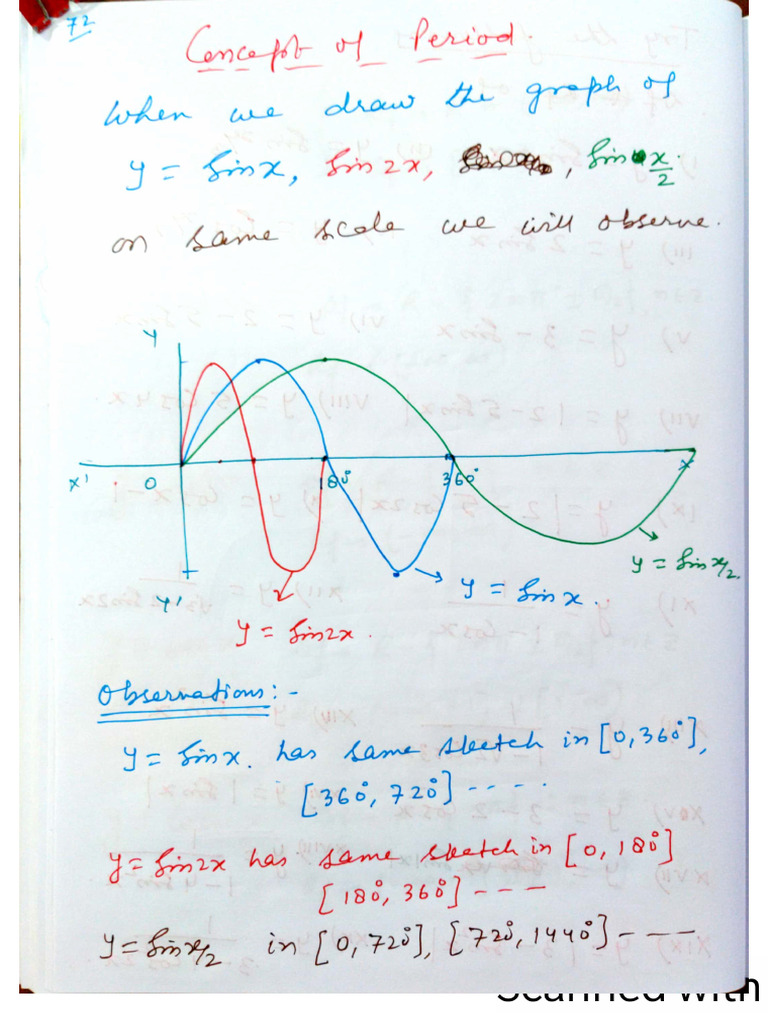 72
Concept of Period.
When we draw the graph of
y = sinx, sin 2x, , sin x/2
on same scale we will observe.
Y
X' O 180° 360° X
y = sin x/2.
Y' y = sin x.
y = sin2x.
Observations:-
y = sinx. has same sketch in [0,360°],
[360°, 720°] ----
y = sin2x has same sketch in [0, 180°]
[180°, 360°] ---
y = sinx/2 in [0,720°], [720°, 1440°] ---
Scanned with